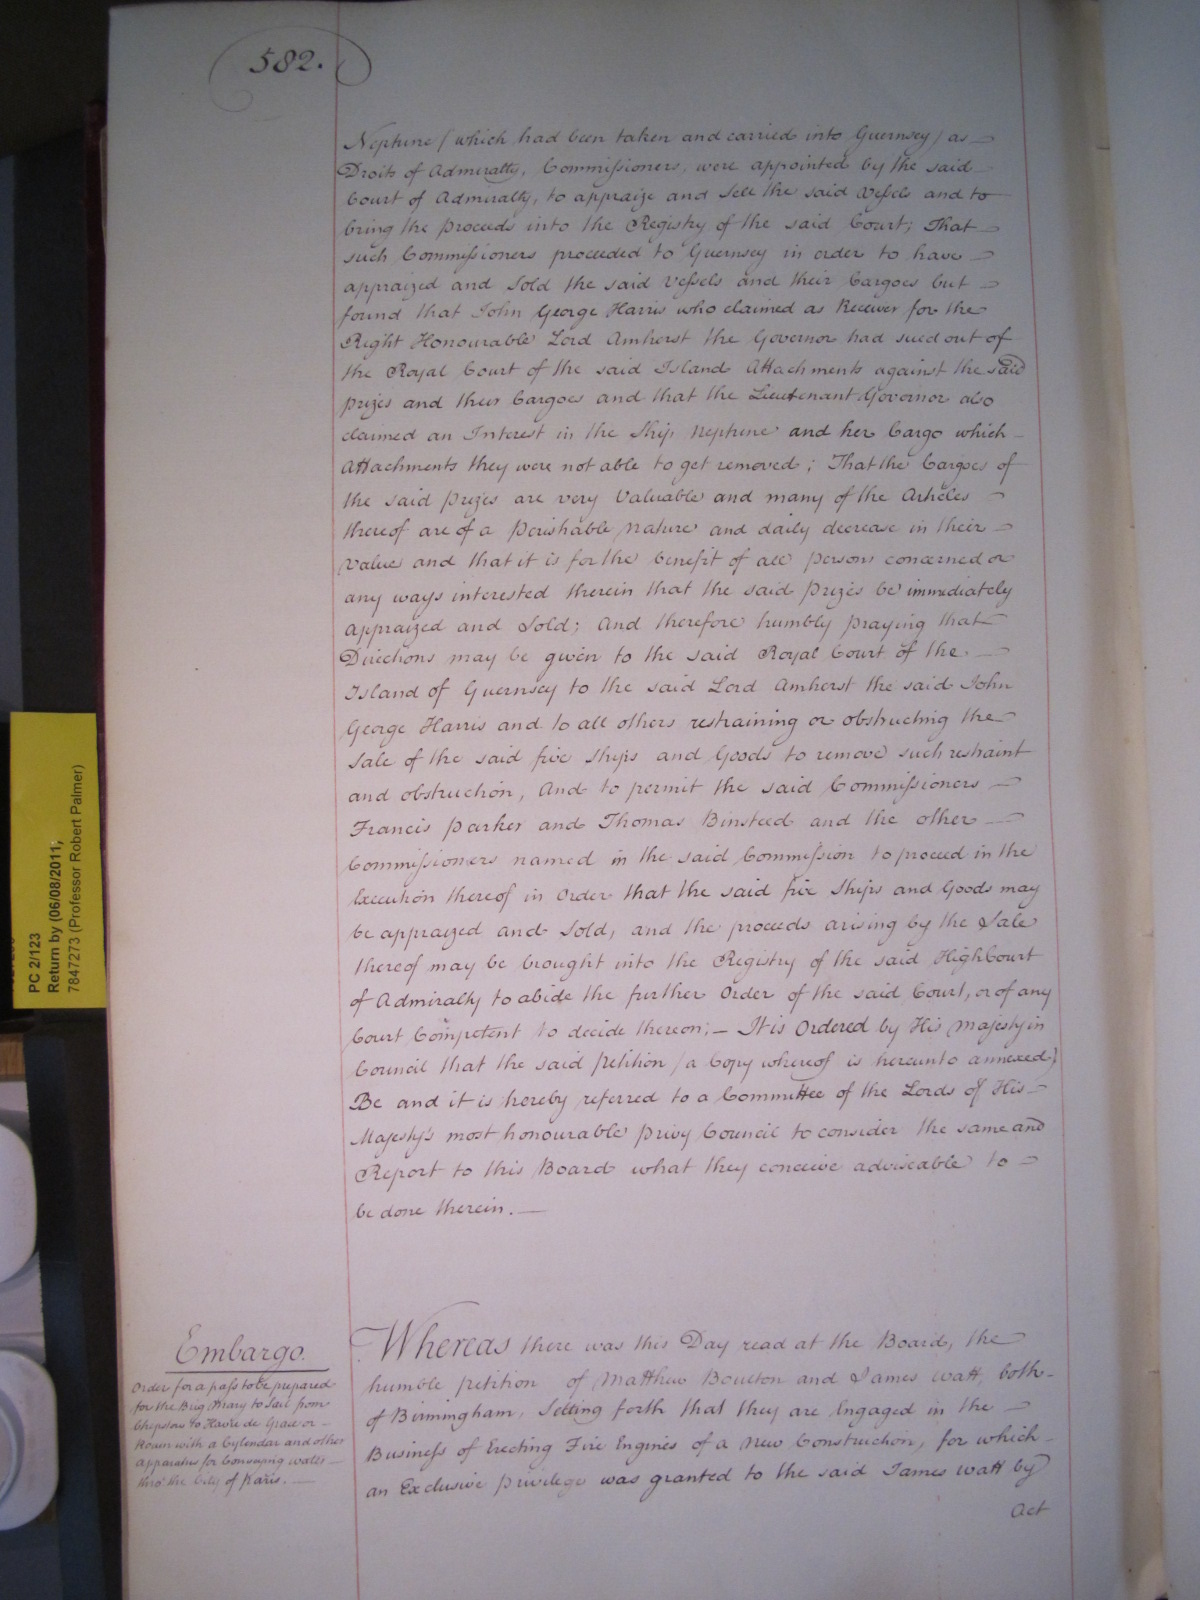 582.
Neptune (which had been taken and carried into Guernsey) as
Droits of Admiralty, Commissioners, were appointed by the said
Court of Admiralty, to appraize and Sell the said Vessels and to
bring the Proceeds into the Registry of the said Court; That
such Commissioners proceeded to Guernsey in order to have
appraized and Sold the said Vessels and their Cargoes but
found that John George Harris who claimed as Receiver for the
Right Honourable Lord Amherst the Governor had sued out of
the Royal Court of the said Island Attachments against the said
Prizes and their Cargoes and that the Lieutenant Governor also
claimed an Interest in the Ship Neptune and her Cargo which
Attachments they were not able to get removed; That the Cargoes of
the said Prizes are very Valuable and many of the Articles
thereof are of a Perishable Nature and daily decrease in their
Value and that it is for the benefit of all Persons concerned or
any ways interested therein that the said Prizes be immediately
Appraized and Sold; And therefore humbly praying that
Directions may be given to the said Royal Court of the
Island of Guernsey to the said Lord Amherst the said John
George Harris and to all others restraining or obstructing the
Sale of the said five Ships and Goods to remove such restraint
and obstruction, And to permit the said Commissioners
Francis Parker and Thomas Binsteed and the other
Commissioners named in the said Commission to proceed in the
Execution thereof in Order that the said five Ships and Goods may
be appraized and Sold, and the proceeds arising by the Sale
thereof may be brought into the Registry of the said High Court
of Admiralty to abide the further Order of the said Court, or of any
Court Competent to decide thereon; – It is Ordered by His Majesty in
Council that the said Petition (a Copy whereof is hereunto annexed)
Be and it is hereby referred to a Committee of the Lords of His
Majesty's most honourable Privy Council to consider the same and
Report to this Board what they conceive adviseable to
be done therein. —
Embargo.
Order for a pass to be prepared
for the Brig Mary to Sail from
Chepstow to Havre de Grace or
Roan with a Cylendar and other
Apparatus for Conveying water
thro' the City of Paris. —
Whereas there was this Day read at the Board, the
humble Petition of Matthew Boulton and James Watt, both
of Birmingham, Setting forth that they are Engaged in the
Business of Erecting Fire Engines of a New Construction, for which
an Exclusive Privilege was granted to the said James Watt by
Act
PC 2/123
Return by (06/08/2011;
7847273 (Professor Robert Palmer)